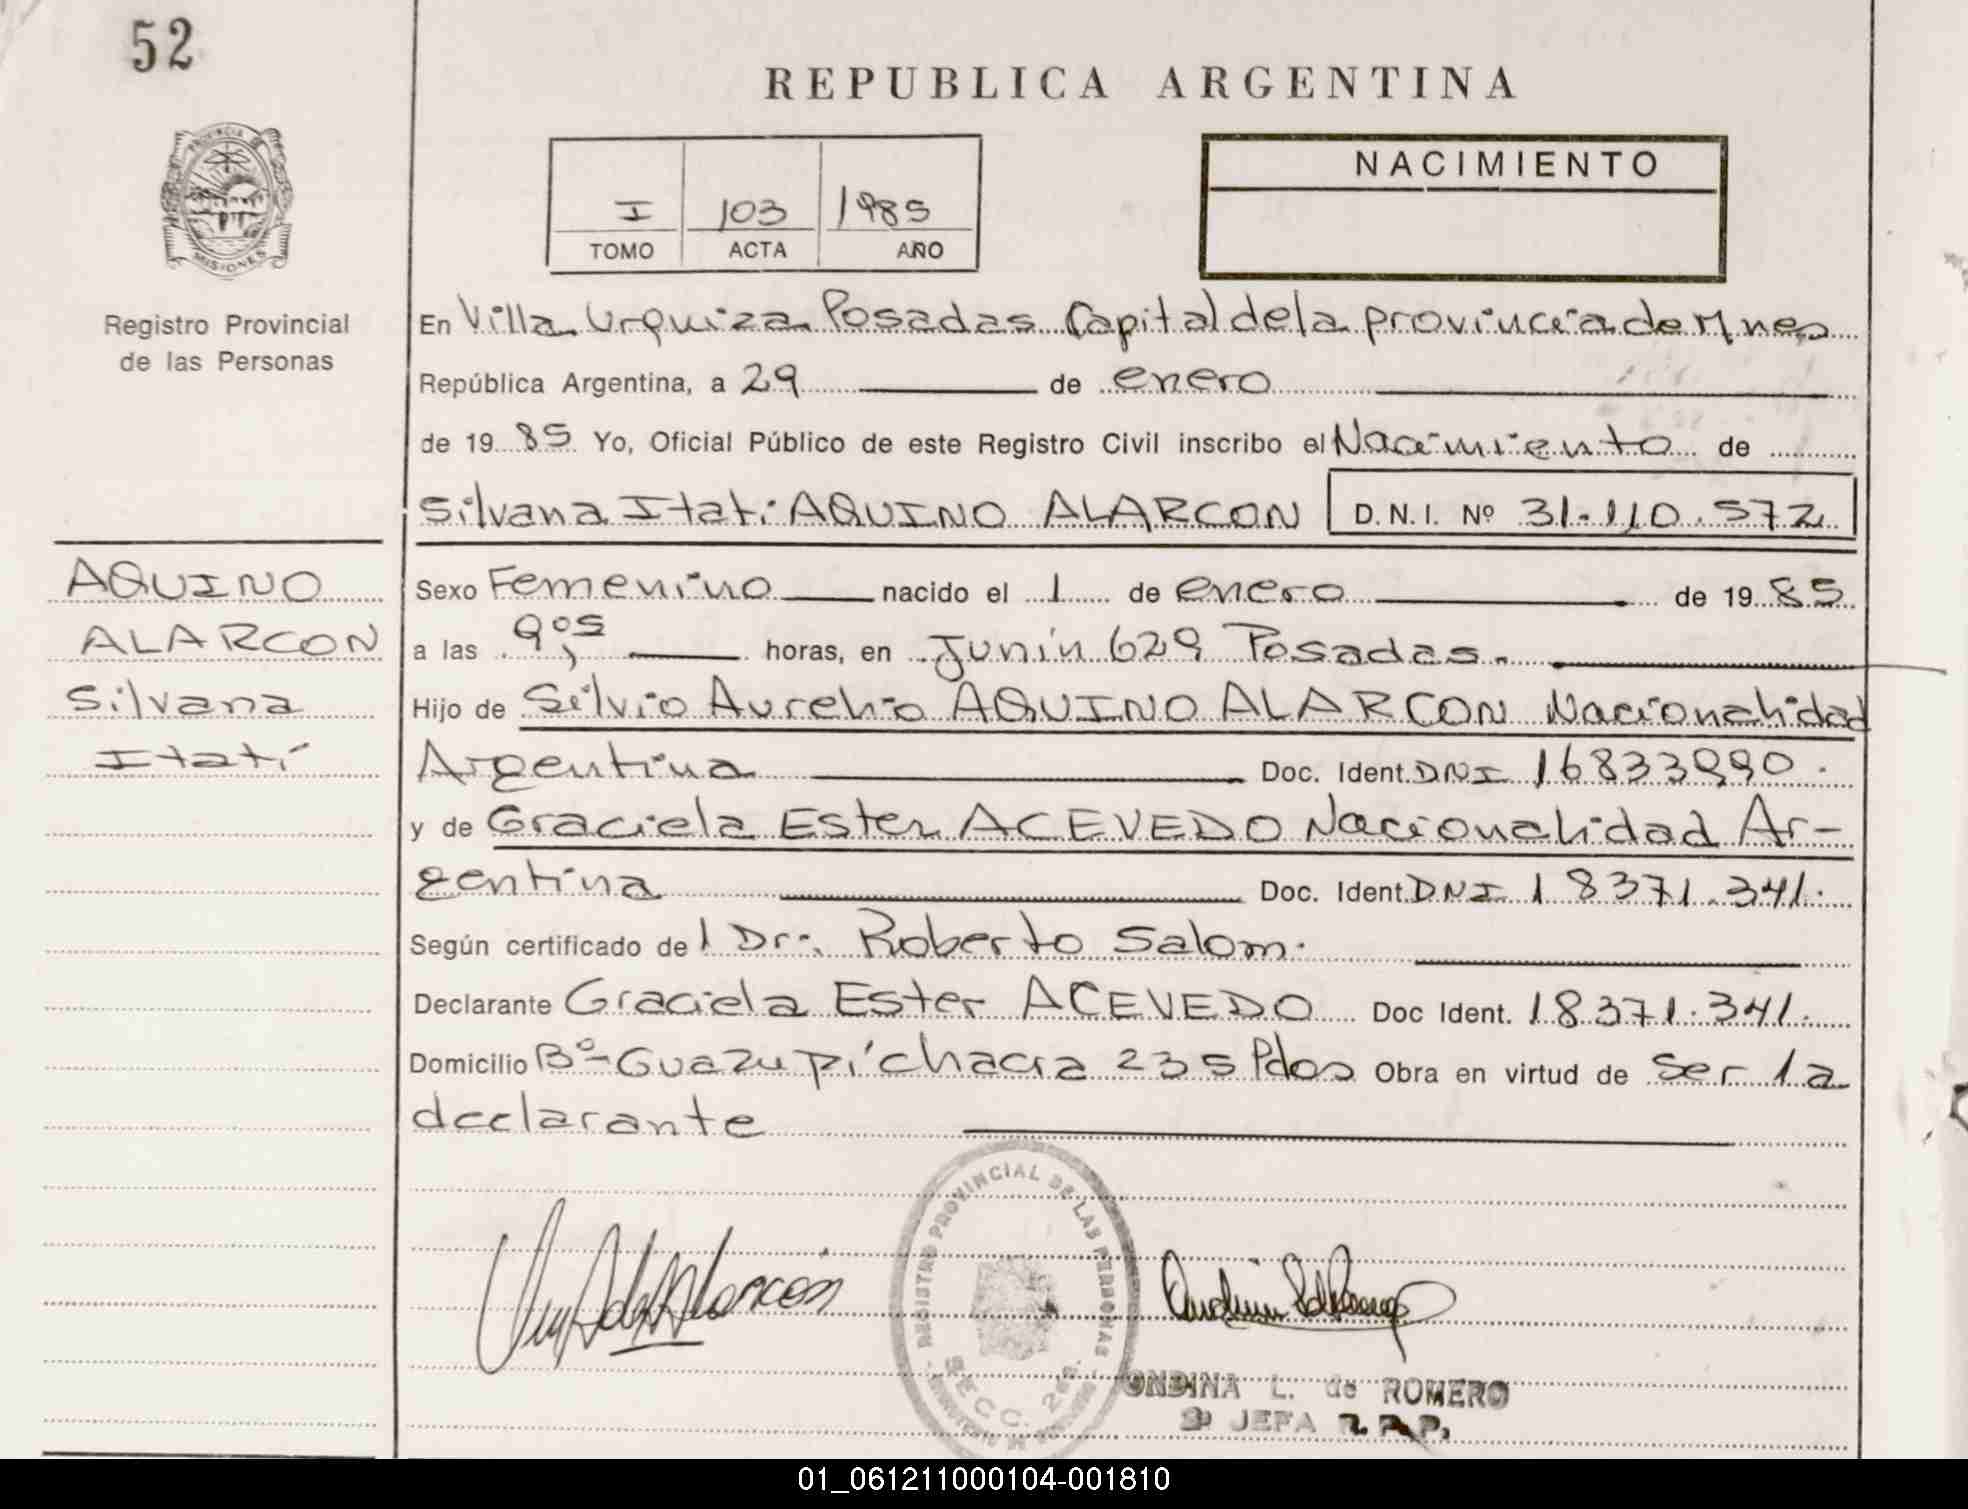 52
REPUBLICA ARGENTINA
PROVINCIA DE
MISIONES
Registro Provincial
de las Personas
I 103 1985
TOMO ACTA AÑO
NACIMIENTO
En Villa Urquiza Posadas Capital de la provincia de Mnes
República Argentina, a 29 de enero
de 19 85 Yo, Oficial Público de este Registro Civil inscribo el Nacimiento de
Silvana Itatí AQUINO ALARCON D.N.I. Nº 31.110.572
AQUINO
ALARCON
Silvana
Itatí
Sexo Femenino nacido el 1 de enero de 19 85
a las 9,05 horas, en Junín 629 Posadas.
Hijo de Silvio Aurelio AQUINO ALARCON Nacionalidad
Argentina Doc. Ident. DNI 16833990.
y de Graciela Ester ACEVEDO Nacionalidad Ar-
gentina Doc. Ident. DNI 18371.341.
Según certificado de l Dr. Roberto Salom.
Declarante Graciela Ester ACEVEDO Doc Ident. 18.371.341.
Domicilio Bº Guazu pi chacra 235 Pdas Obra en virtud de ser la
declarante
REGISTRO PROVINCIAL DE LAS PERSONAS
SECC. 2da.
ONDINA L. de ROMERO
JEFA R.P.P.
01_061211000104-001810